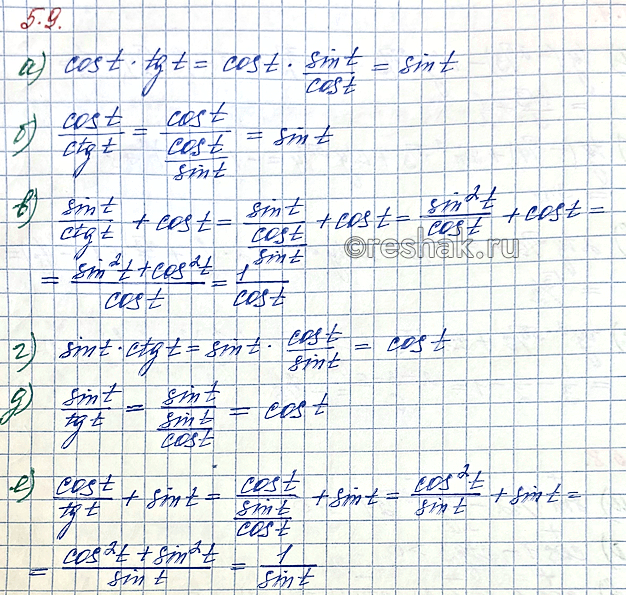 5.9.
а) cos t · tg t = cos t · sin t / cos t = sin t
б) cos t / ctg t = cos t / (cos t / sin t) = sin t
в) sin t / ctg t + cos t = sin t / (cos t / sin t) + cos t = sin²t / cos t + cos t =
= (sin²t + cos²t) / cos t = 1 / cos t
©reshak.ru
г) sin t · ctg t = sin t · cos t / sin t = cos t
д) sin t / tg t = sin t / (sin t / cos t) = cos t
е) cos t / tg t + sin t = cos t / (sin t / cos t) + sin t = cos²t / sin t + sin t =
= (cos²t + sin²t) / sin t = 1 / sin t